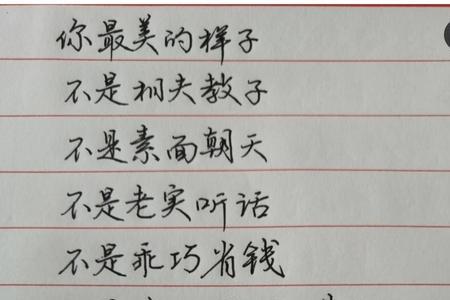 你最美的样子
不是相夫教子
不是素面朝天
不是老实听话
不是乖巧省钱